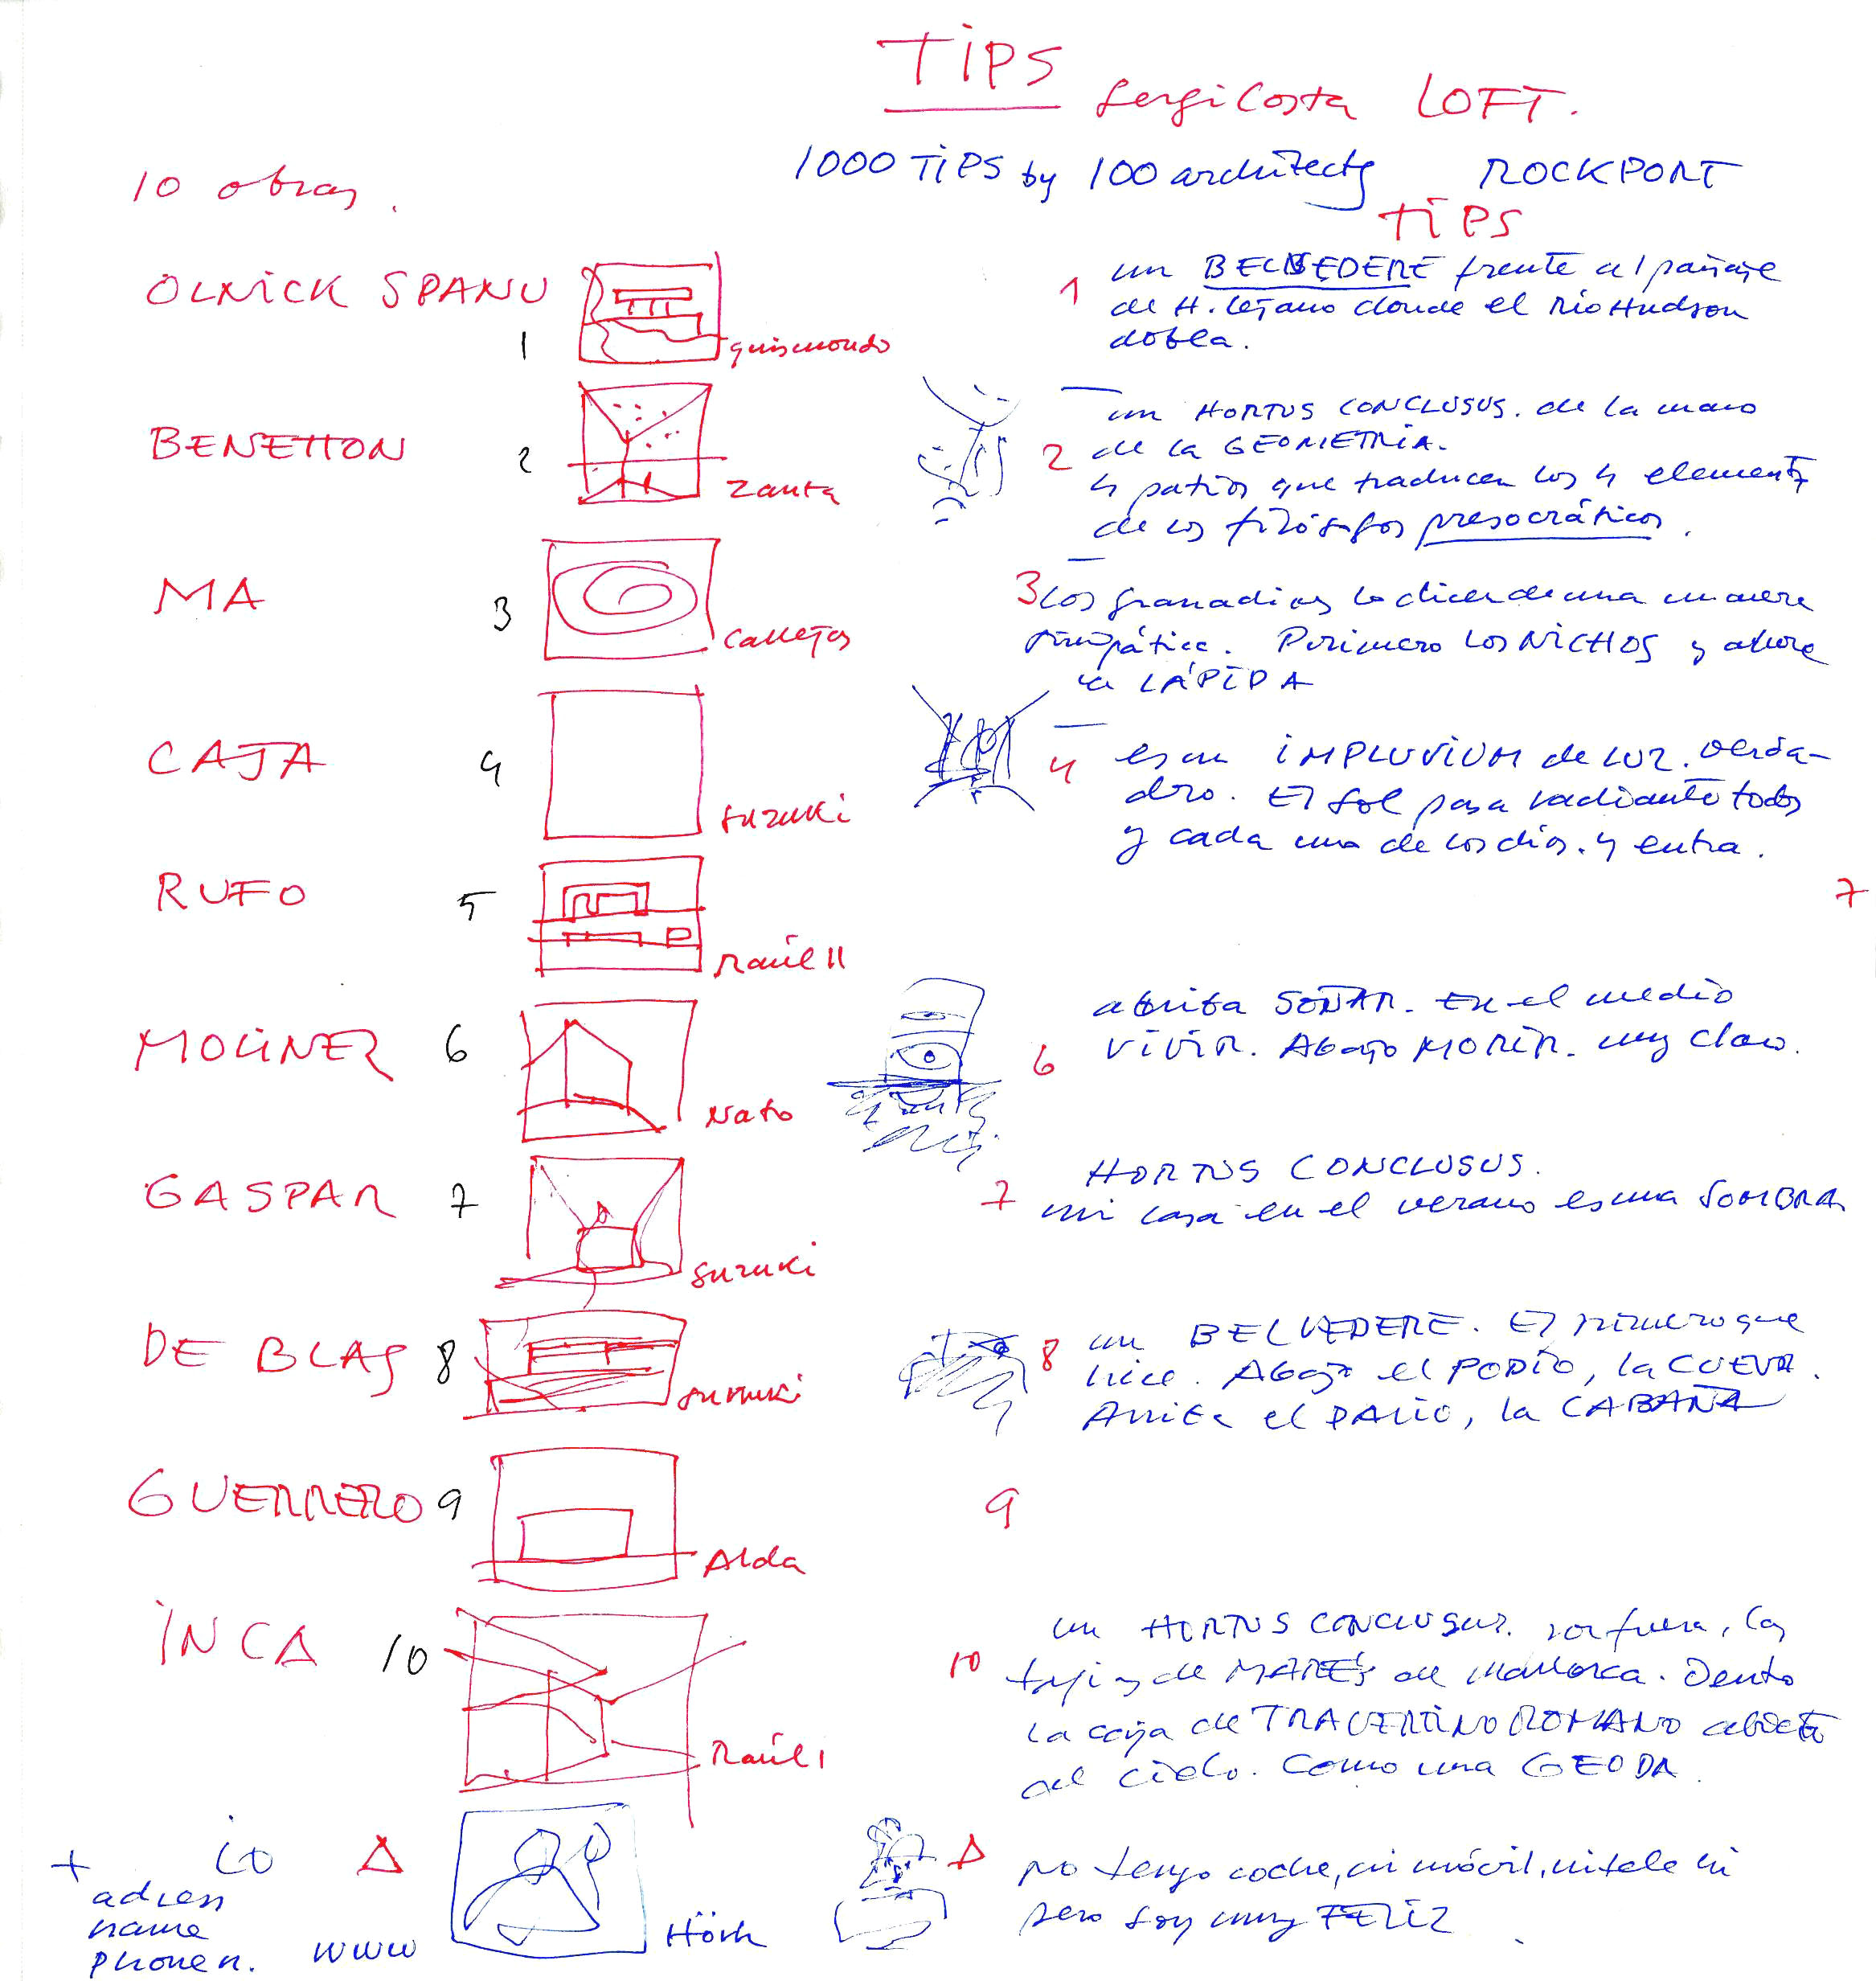 TIPS Sergi Costa LOFT.
1000 TIPS by 100 architects ROCKPORT
10 obras.
TIPS
OLNICK SPANU
1
guismondo
1 un BELVEDERE frente al paisaje
de H. lejano donde el Río Hudson
dobla.
BENETTON 2
Zanta
un HORTUS CONCLUSUS. de la mano
2 de la GEOMETRIA.
4 patios que traducen los 4 elementos
de los filósofos presocráticos.
MA 3
Callejas
3 Los granadinos lo dicen de una manera
simpática. Primero los NICHOS y ahora
la LÁPIDA
CAJA 4
Suzuki
4 es un IMPLUVIUM de LUZ. verda-
dero. El Sol pasa radiante todos
y cada uno de los días. y entra.
RUFO 5
Raúl II
7
MOLINER 6
Nato
arriba SOÑAR. En el medio
6 VIVIR. Abajo MORIR. muy claro.
GASPAR 7
Suzuki
HORTUS CONCLUSUS.
7 mi casa en el verano es una SOMBRA
DE BLAS 8
Suzuki
8 un BELVEDERE. El primero que
hice. Abajo el PODIO, la CUEVA.
Arriba el PALIO, la CABAÑA
GUERRERO 9
Alda
9
INCA 10
Raúl I
un HORTUS CONCLUSUS. por fuera, las
10 tapias de MARÉS de Mallorca. Dentro
la caja de TRAVERTINO ROMANO abierta
al cielo. Como una GEODA.
+ io Δ
adress
name
phone n. www
Hörh
Δ no tengo coche, ni móvil, ni tele ni
pero soy muy FELIZ.